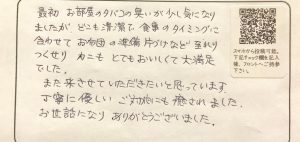 最初 お部屋のタバコの臭いが少し気になり
ましたが どこも清潔で 食事のタイミングに
合わせて お布団の準備 片づけなど 至れり
つくせり カニも とてもおいしくて 大満足
でした。
また来させていただきたいと思っています。
丁寧に優しい ご対応にも 癒されました。
お世話になり ありがとうございました。
スマホから投稿可能。
下記チェック欄を記入
後、フロントへご持参
下さい。